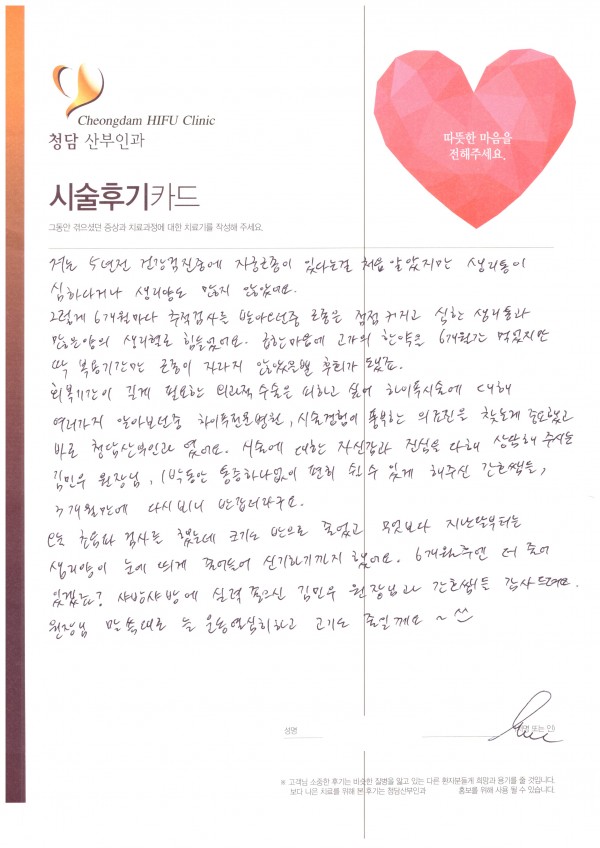 Cheongdam HIFU Clinic
청담 산부인과
따뜻한 마음을
전해주세요.
시술후기카드
그동안 겪으셨던 증상과 치료과정에 대한 치료기를 작성해 주세요.
저는 5년전 건강검진중에 자궁근종이 있다는걸 처음 알았지만 생리통이
심하다거나 생리양도 많지 않았어요.
그렇게 6개월마다 추적검사를 받아오던중 근종은 점점 커지고 심한 생리통과
많은양의 생리혈로 힘들었어요. 급한마음에 고가의 한약을 6개월간 먹었지만
딱 복용기간만 근종이 자라지 않았을뿐 후회가 됐죠.
회복기간이 길게 필요한 외과적 수술은 피하고 싶어 하이푸시술에 대해
여러가지 알아보던중 하이푸전문병원, 시술경험이 풍부한 의료진을 찾는게 중요했고
바로 청담산부인과 였어요. 시술에 대한 자신감과 진심을 다해 상담해 주시는
김민우 원장님, 1박동안 통증하나없이 편히 쉴수 있게 해주신 간호쌤들,
3개월만에 다시보니 반갑더라구요.
오늘 초음파 검사를 했는데 크기도 반으로 줄었고 무엇보다 지난달부터는
생리양이 눈에 띄게 줄어들어 신기하기까지 했어요. 6개월후엔 더 줄어
있겠죠? 샤방샤방에 실력 좋으신 김민우 원장님과 간호쌤들 감사드려요.
원장님 말씀대로 늘 운동열심히하고 고기도 줄일께요~
성명
(서명 또는 인)
※ 고객님 소중한 후기는 비슷한 질병을 앓고 있는 다른 환자분들께 희망과 용기를 줄 것입니다.
보다 나은 치료를 위해 본 후기는 청담산부인과 홍보를 위해 사용 될 수 있습니다.